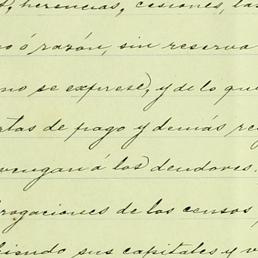 herencias, cesiones, las
ó razón, sin reserva
no se exprese), y de lo que
de pago y demás
vengan á los deudores.
rogaciones de los censos,
sus capitales y